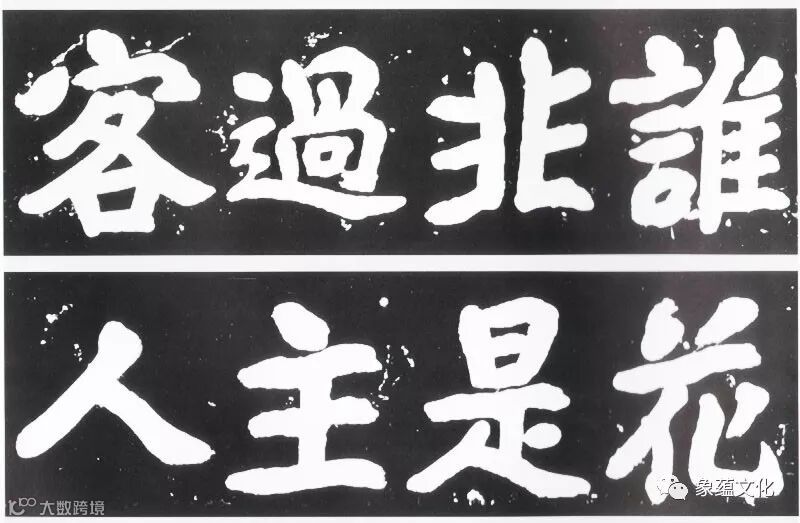 誰非過客
花是主人
象蕴文化
大数跨境